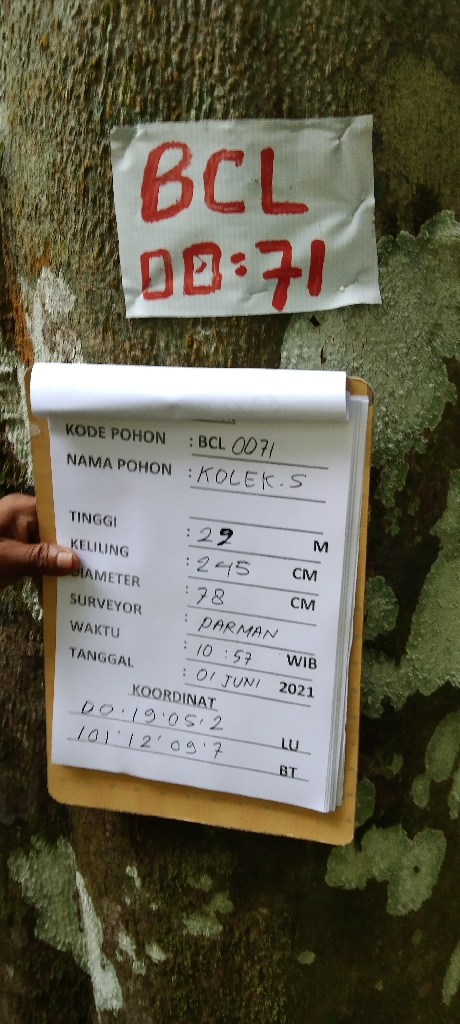 BCL
00:71
KODE POHON : BCL 0071
NAMA POHON : KOLEK.S
TINGGI : 29 M
KELILING : 245 CM
DIAMETER : 78 CM
SURVEYOR : PARMAN
WAKTU : 10:57 WIB
TANGGAL : 01 JUNI 2021
KOORDINAT
00.19.05.2 LU
101.12.09.7 BT